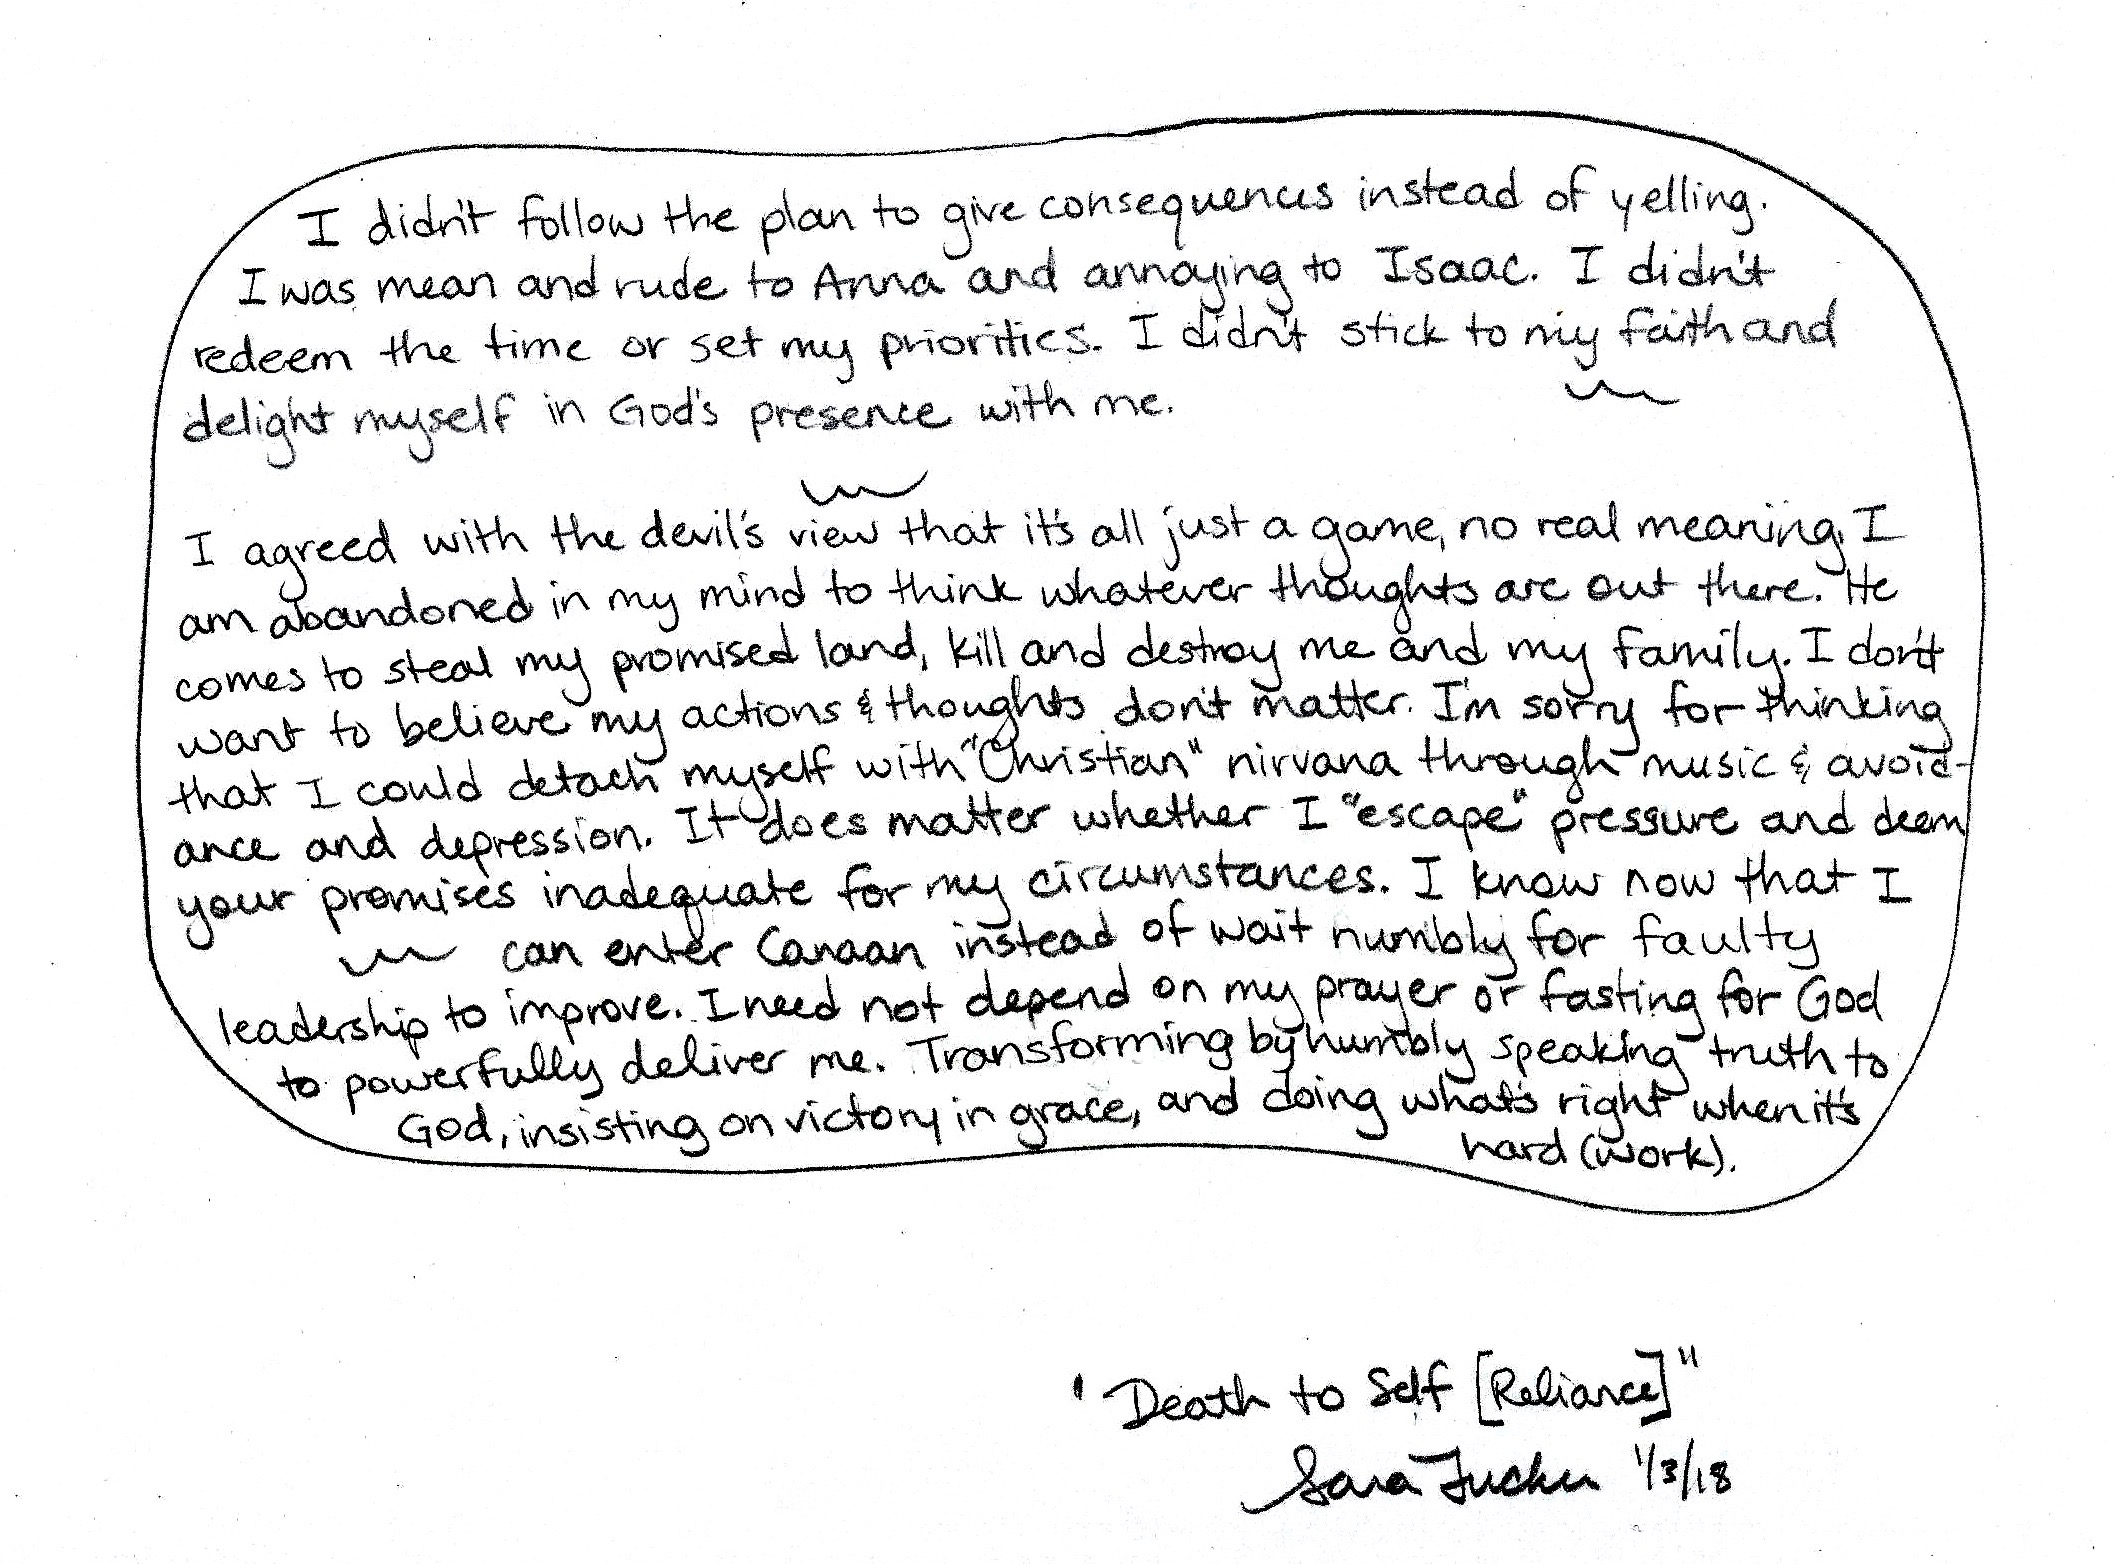 I didn't follow the plan to give consequences instead of yelling.
I was mean and rude to Anna and annoying to Isaac. I didn't
redeem the time or set my priorities. I didn't stick to my faith and
delight myself in God's presence with me.
I agreed with the devil's view that it's all just a game, no real meaning. I
am abandoned in my mind to think whatever thoughts are out there. He
comes to steal my promised land, kill and destroy me and my family. I don't
want to believe my actions & thoughts don't matter. I'm sorry for thinking
that I could detach myself with "Christian" nirvana through music & avoid-
ance and depression. It does matter whether I "escape" pressure and deem
your promises inadequate for my circumstances. I know now that I
can enter Canaan instead of wait numbly for faulty
leadership to improve. I need not depend on my prayer or fasting for God
to powerfully deliver me. Transforming by humbly speaking truth to
God, insisting on victory in grace, and doing what's right when it's
hard (work).
"Death to Self [Reliance]"
Sara Tucker 1/3/18